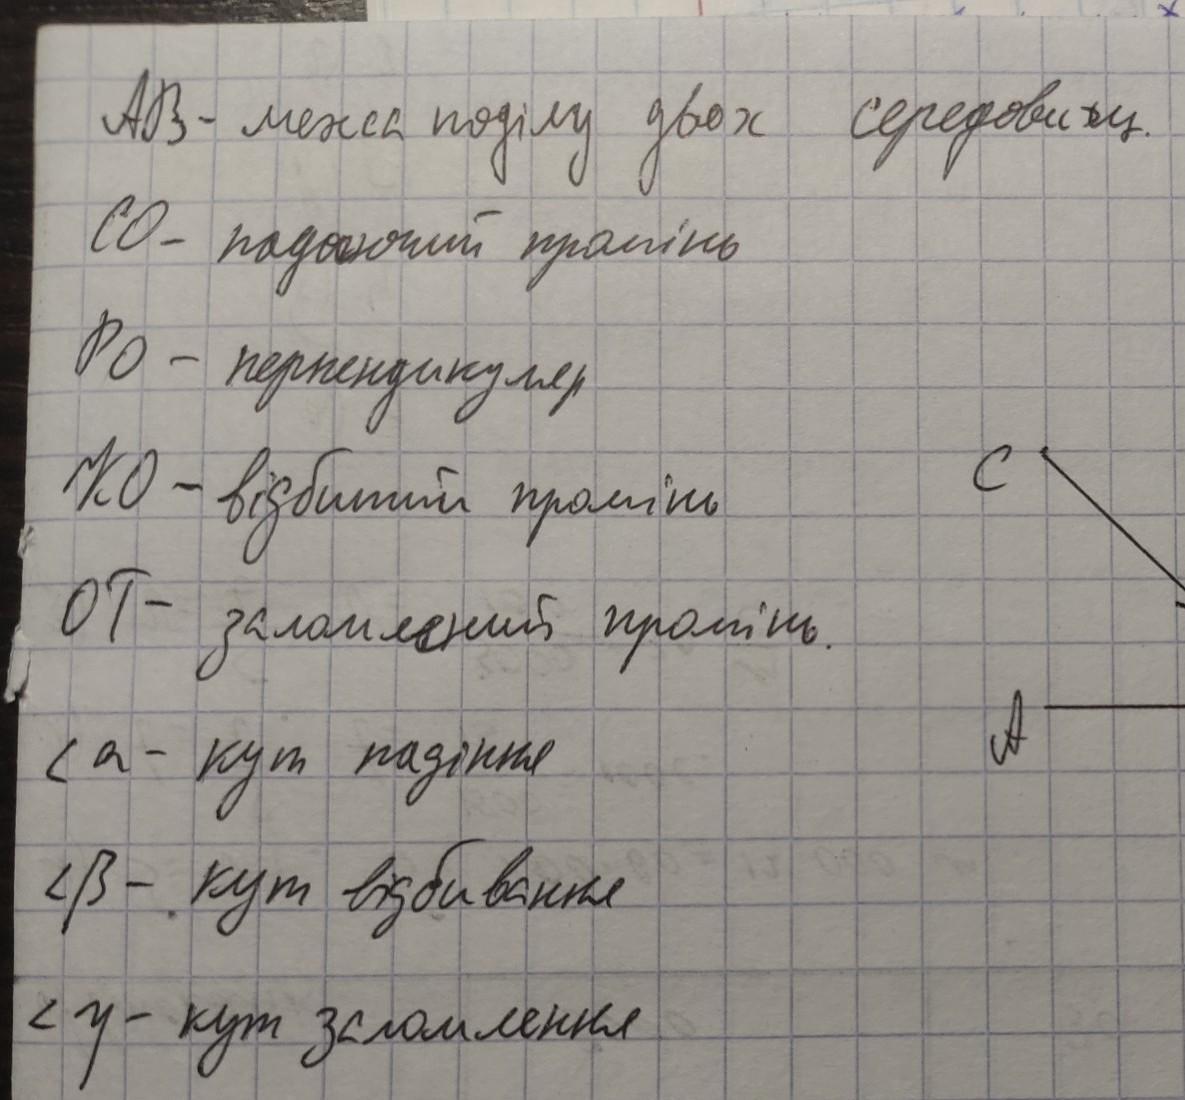 АВ - межа поділу двох середовищ.
СО - падаючий промінь
РО - перпендикуляр
КО - відбитий промінь
ОТ - заломлений промінь.
С
А
<α - кут падіння
<β - кут відбивання
<γ - кут заломлення